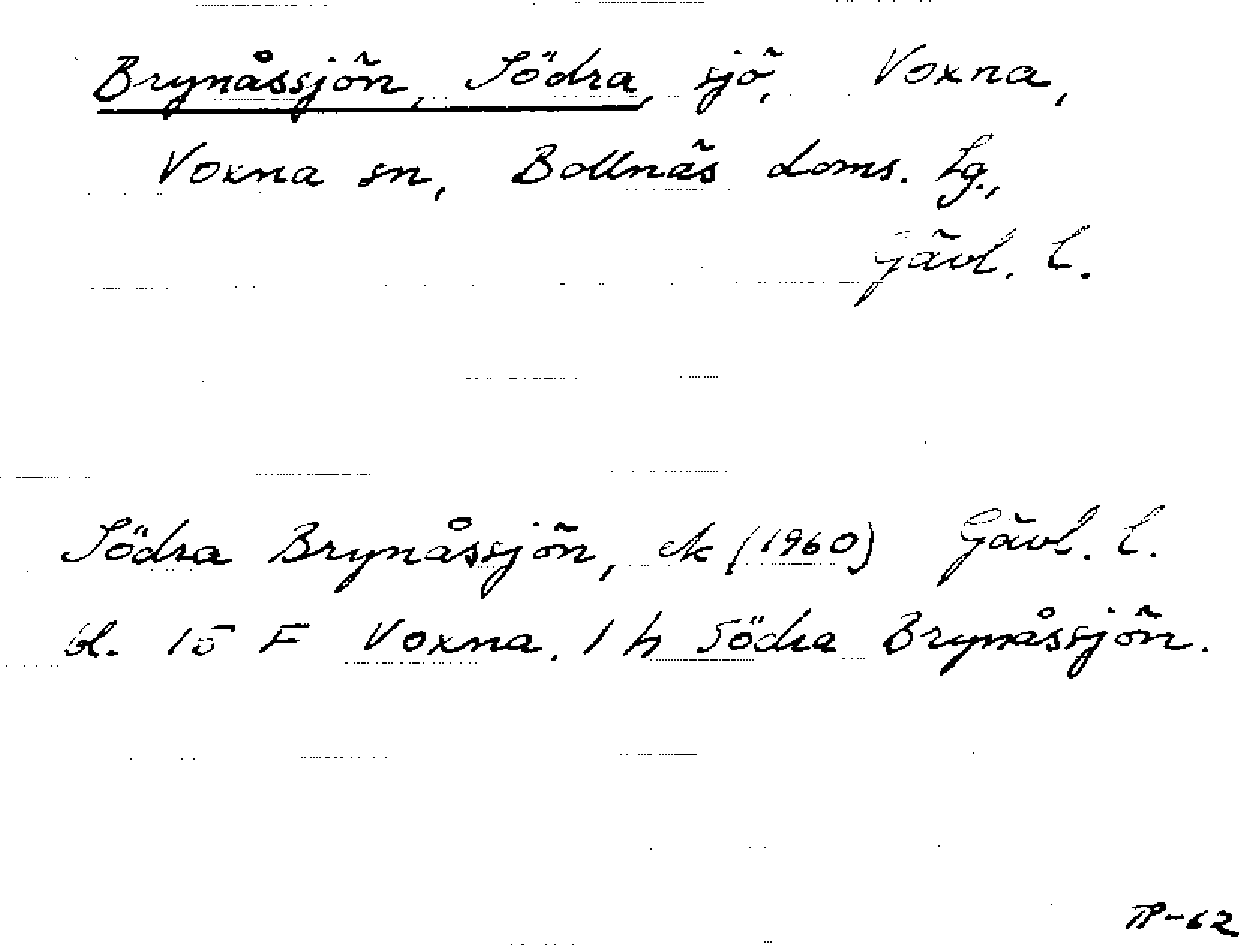 Brynåssjön, Södra, sjö, Voxna,
Voxna sn, Bollnäs doms. Lg.,
Gävl. L.
Södra Brynåssjön, ek (1960) Gävl. L.
bl. 15 F Voxna. 1 h Södra Brynåssjön.
TP-62